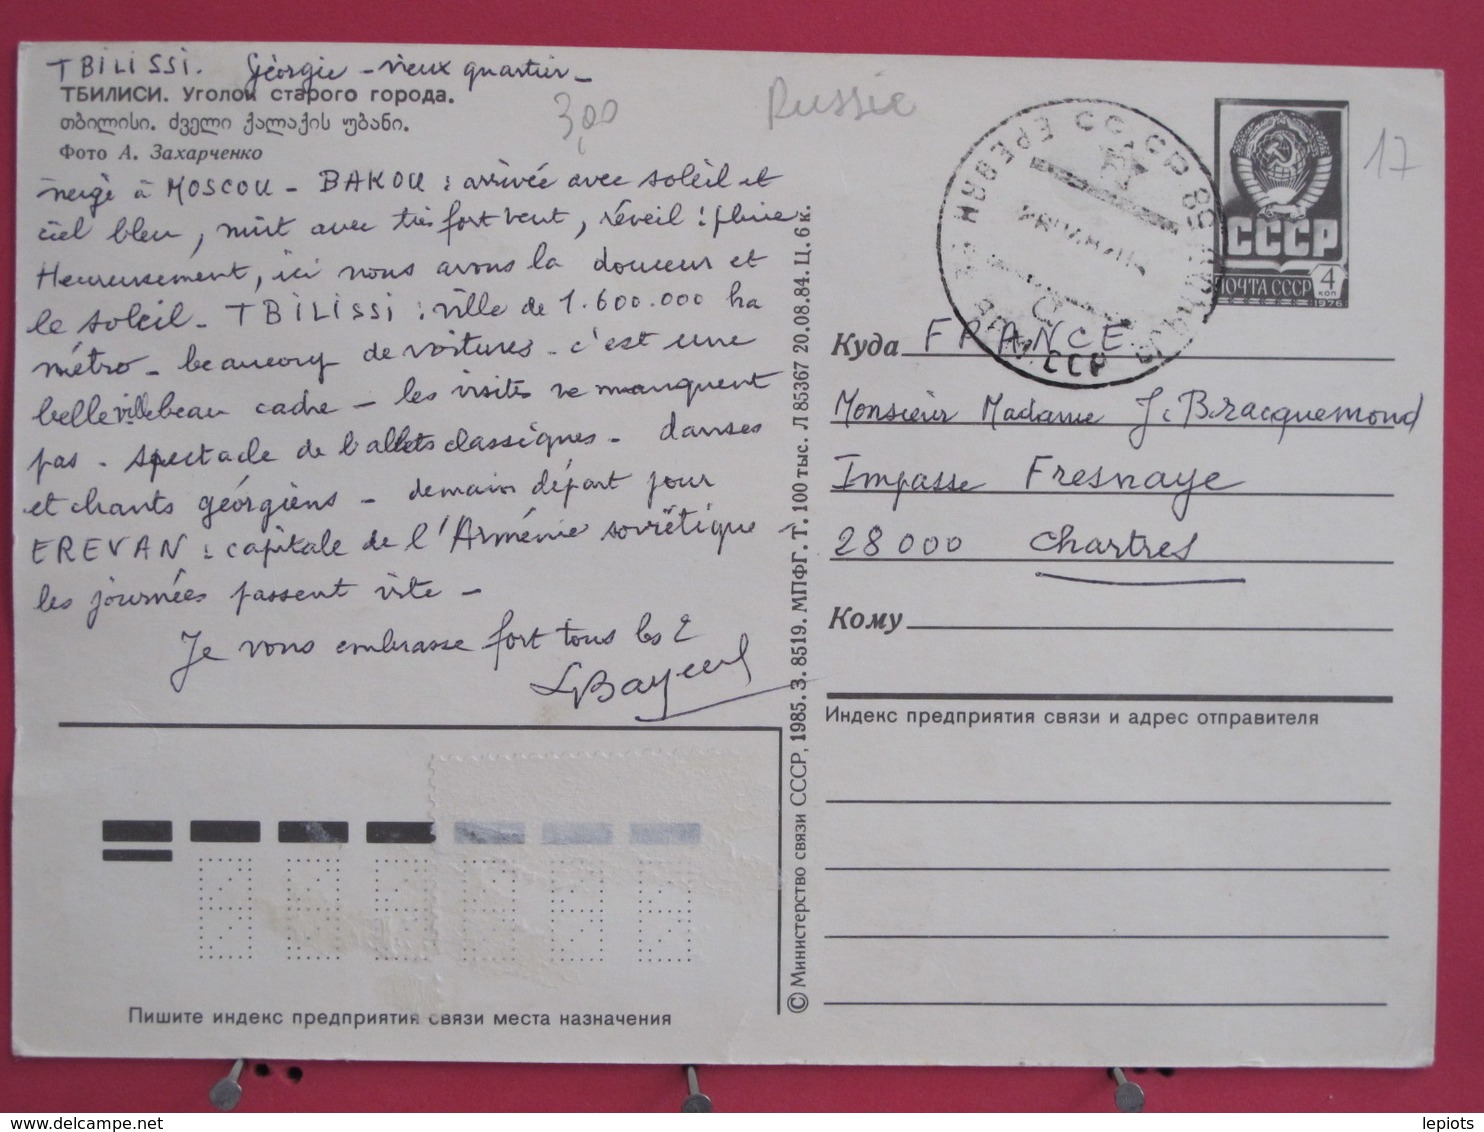 TBILISSI. Géorgie - vieux quartier -
ТБИЛИСИ. Уголок старого города.
თბილისი. ძველი ქალაქის უბანი.
Фото А. Захарченко
3,00
Russie
17
neige à MOSCOU - BAKOU : arrivée avec soleil et
ciel bleu, nuit avec très fort vent, réveil : pluie
Heureusement, ici nous avons la douceur et
le soleil - TBILISSI : ville de 1.600.000 ha
métro - beaucoup de voitures - c'est une
belle ville beau cadre - les visites ne manquent
pas - spectacle de ballets classiques - danses
et chants géorgiens - demain départ pour
EREVAN : capitale de l'Arménie soviétique -
les journées passent vite -
Je vous embrasse fort tous les 2
Пишите индекс предприятия связи места назначения
© Министерство связи СССР, 1985. З. 8519. МПФГ. Т. 100 тыс. Л 85367 20.08.84. Ц. 6 к.
СССР
ПОЧТА СССР 4 КОП
1976
ЕРЕВАН
СССР
Куда FRANCE
Monsieur Madame J. Bracquemond
Impasse Fresnaye
28000 Chartres
Кому
Индекс предприятия связи и адрес отправителя
lepiots